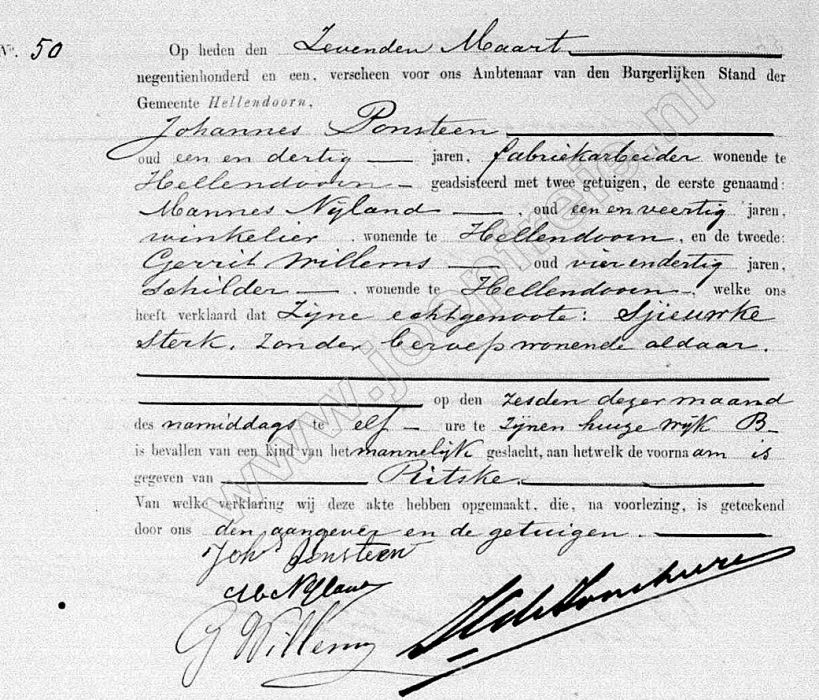 No. 50
Op heden den Zevenden Maart
negentienhonderd en een, verscheen voor ons Ambtenaar van den Burgerlijken Stand der
Gemeente Hellendoorn,
Johannes Ponsteen
oud een en dertig jaren, fabriekarbeider wonende te
Hellendoorn geadsisteerd met twee getuigen, de eerste genaamd:
Mannes Nijland, oud een en veertig jaren,
winkelier, wonende te Hellendoorn, en de tweede:
Gerrit Willems oud vier en dertig jaren,
Schilder, wonende te Hellendoorn, welke ons
heeft verklaard dat Zijne echtgenoote: Sjieuwke
Sterk, Zonder beroep wonende aldaar.
op den Zesden dezer maand
des namiddags te elf ure te Zijnen huize wijk B
is bevallen van een kind van het mannelijk geslacht, aan hetwelk de voornaam is
gegeven van Ritske.
Van welke verklaring wij deze akte hebben opgemaakt, die, na voorlezing, is geteekend
door ons den aangever en de getuigen.
Joh Ponsteen
M Nijland
G Willems
www.joopreie.nl